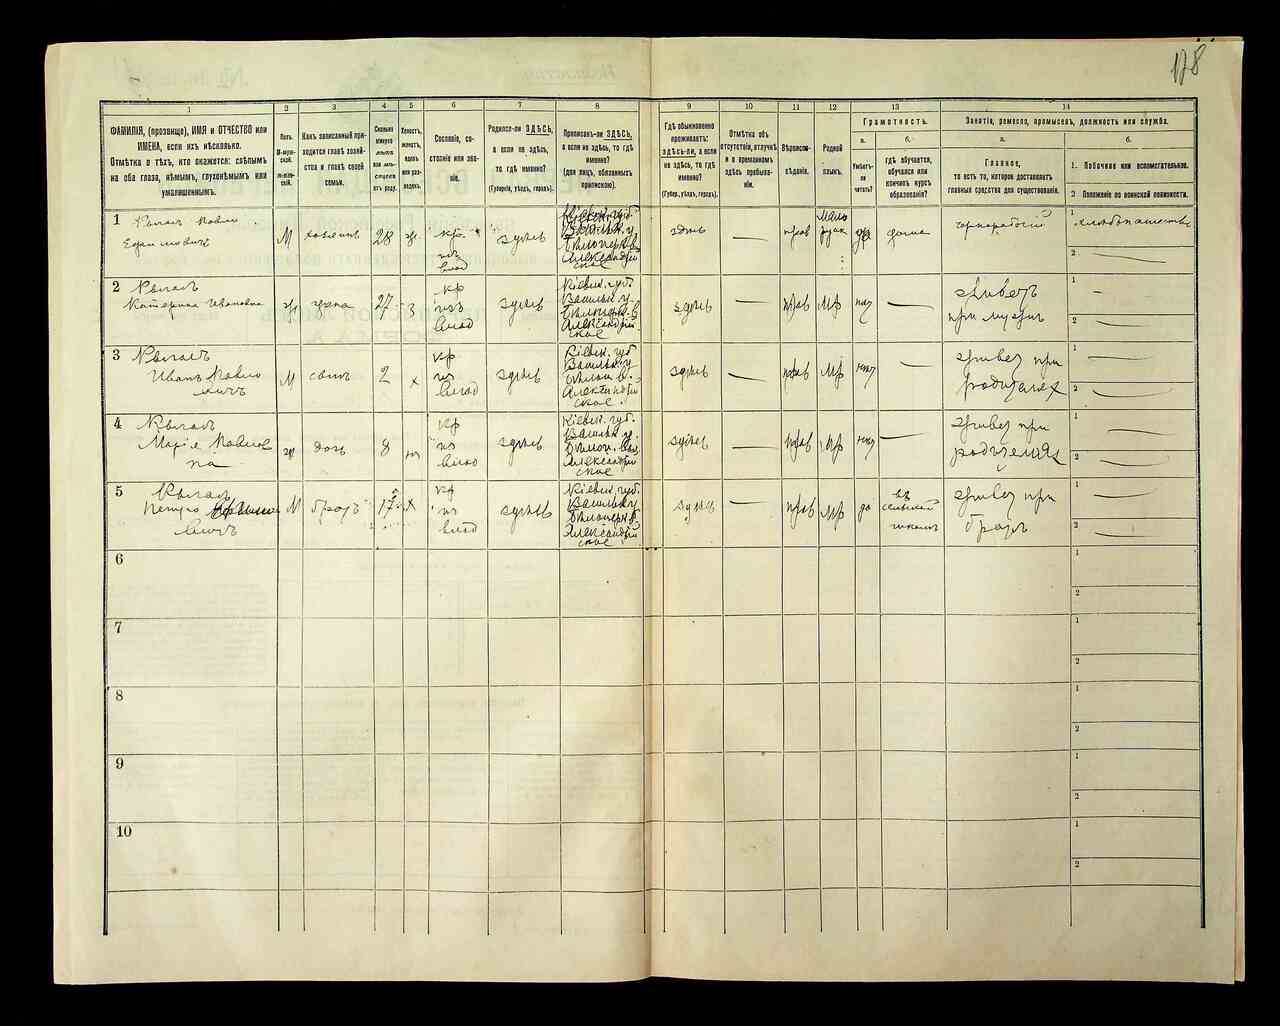 178
1
2
3
4
5
6
7
8
9
10
11
12
13
14
ФАМИЛІЯ, (прозвище), ИМЯ и ОТЧЕСТВО или
ИМЕНА, если ихъ нѣсколько.
Отмѣтка о тѣхъ, кто окажется: слѣпымъ
на оба глаза, нѣмымъ, глухонѣмымъ или
умалишеннымъ.
Полъ.
М-муж-
ской.
Ж-жен-
скій.
Какъ записанный при-
ходится главѣ хозяй-
ства и главѣ своей
семьи.
Сколько
минуло
лѣтъ
или мѣ-
сяцевъ
отъ роду.
Холостъ,
женатъ,
вдовъ
или раз-
веденъ.
Сословіе, со-
стояніе или зва-
ніе.
Родился-ли ЗДѢСЬ,
а если не здѣсь,
то гдѣ именно?
(Губернія, уѣздъ, городъ).
Приписанъ-ли ЗДѢСЬ,
а если не здѣсь, то гдѣ
именно?
(для лицъ, обязанныхъ
припискою).
Гдѣ обыкновенно
проживаетъ:
ЗДѢСЬ-ЛИ, а если
не здѣсь, то гдѣ
именно?
(Губер., уѣздъ, городъ).
Отмѣтка объ
отсутствіи, отлучкѣ
и о временномъ
здѣсь пребыва-
ніи.
Вѣроиспо-
вѣданіе.
Родной
языкъ.
Грамотность.
а.
Умѣетъ-
ли
читать?
б.
гдѣ обучается,
обучался или
кончилъ курсъ
образованія?
Занятіе, ремесло, промыселъ, должность или служба.
а.
Главное,
то есть то, которое доставляетъ
главныя средства для существованія.
б.
1. Побочное или вспомогательное.
2 Положеніе по воинской повинности.
1
М
28
кр.
изъ
влад
здѣсь
Кіевск. губ.
Васильк. у.
Александрій
ское
здѣсь
—
прав
Мало
да
дома
чернорабочій
1 хлѣбопашество
2 —
2
Катерина Ивановна
ж
жена
27
з
кр
изъ
влад
здѣсь
Кіевск. губ.
Васильк у.
Александрій
ское
здѣсь
—
прав
мр
нѣт
—
живетъ
при мужѣ
1 —
2 —
3
Иванъ Павло
вичъ
М
сынъ
2
х
кр
изъ
влад
здѣсь
Кіевск. губ
Васильк у
Александрій
ское.
здѣсь
—
прав
мр
нѣт
—
живет при
родителях
1 —
2 —
4
Марія Павлов
на
ж
дочь
8
кр
из
влад
здѣсь
Кіевск. губ.
Васильк. у.
Александрій
ское
здѣсь
—
прав
мр
нѣт
—
живет при
родителях
1 —
2 —
5
Петро
М
братъ
17
х
кр
из
влад
здѣсь
Кіевск. губ.
Васильк у
Александрій
ское
здѣсь
—
прав
мр
да
въ
сельской
школѣ
живет при
братѣ
1 —
2 —
6
1
2
7
1
2
8
1
2
9
1
2
10
1
2